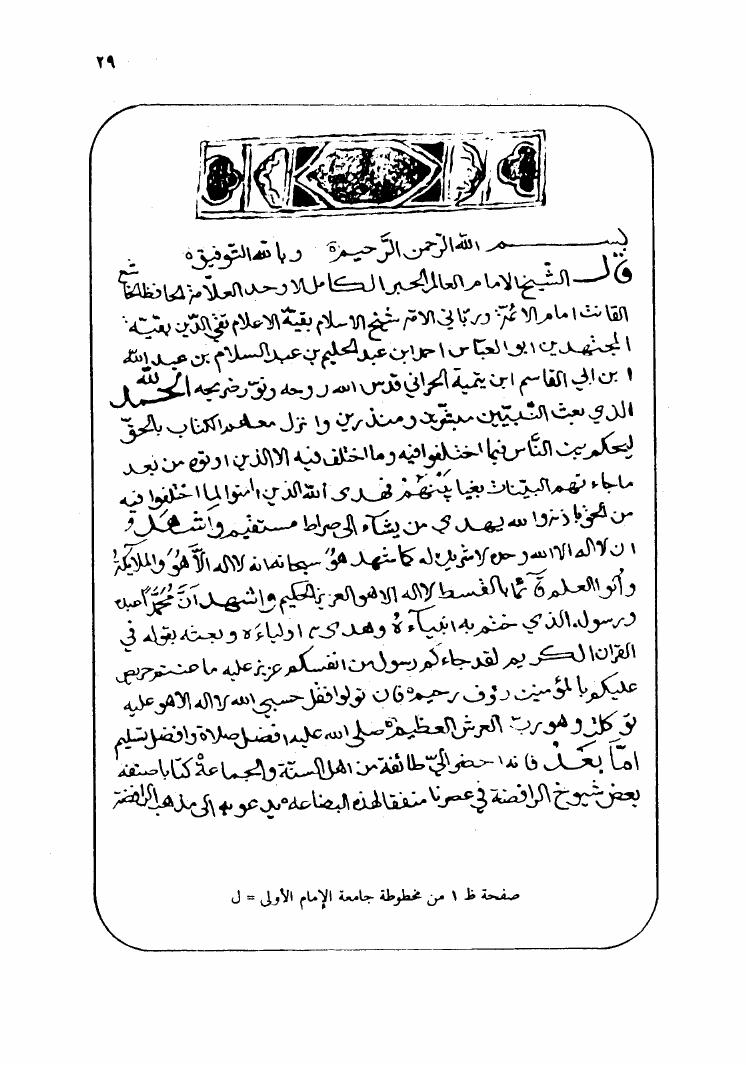 ٢٩
بسم الله الرحمن الرحيم وبالله التوفيق
قال الشيخ الامام العالم الحبر الكامل الاوحد العلامة الحافظ الخاشع
القانت امام الائمة ورباني الامة شيخ الاسلام بقية الاعلام تقي الدين بقية
المجتهدين ابو العباس احمد ابن عبد الحليم بن عبد السلام بن عبد الله
ابن ابي القاسم ابن تيمية الحراني قدس الله روحه ونور ضريحه الحمد لله
الذي بعث النبيين مبشرين ومنذرين وانزل معهم الكتاب بالحق
ليحكم بين الناس فيما اختلفوا فيه وما اختلف فيه الا الذين اوتوه من بعد
ما جاءتهم البينات بغيا بينهم فهدى الله الذين امنوا لما اختلفوا فيه
من الحق باذنه والله يهدي من يشآء الى صراط مستقيم واشهد
ان لا اله الا الله وحده لا شريك له كما شهد هو سبحانه انه لا اله الا هو والملآئكة
وأولو العلم قآئما بالقسط لا اله الا هو العزيز الحكيم واشهد أن محمدا عبده
ورسوله الذي ختم به انبيآءه وهدى به اوليآءه وبعثه بقوله في
القرآن الكريم لقد جاءكم رسول من انفسكم عزيز عليه ما عنتم حريص
عليكم بالمؤمنين رؤف رحيم فان تولوا فقل حسبي الله لا اله الا هو عليه
توكلت وهو رب العرش العظيم صلى الله عليه افضل صلاة وافضل تسليم
اما بعد فانه احضر الي طائفة من اهل السنة والجماعة كتابا صنفه
بعض شيوخ الرافضة في عصرنا منفقا لهذه البضاعه يدعو به الى مذهب الرافضة
صفحة ظ ١ من مخطوطة جامعة الإمام الأولى = ل